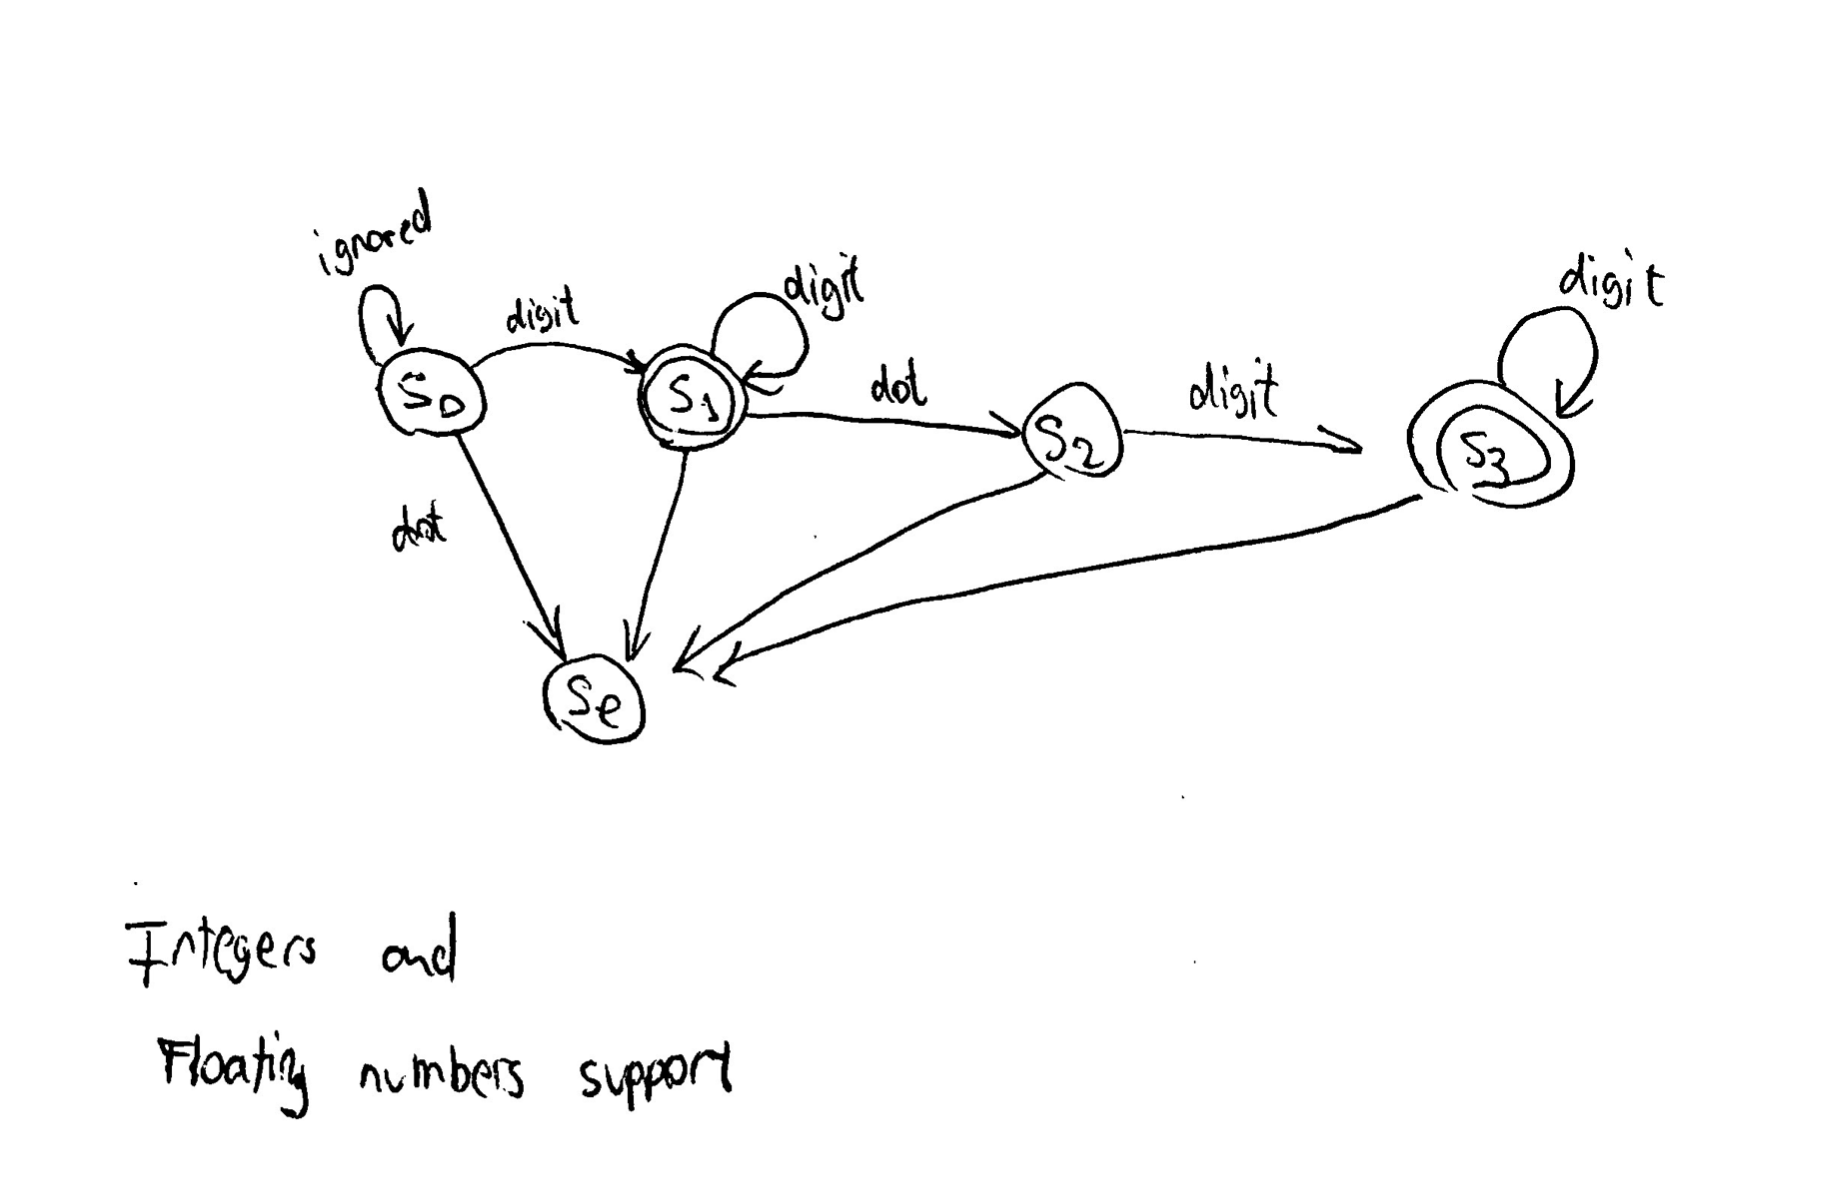 ignored
digit
digit
digit
S0
S1
dot
S2
digit
S3
dot
Se
Integers and
Floating numbers support